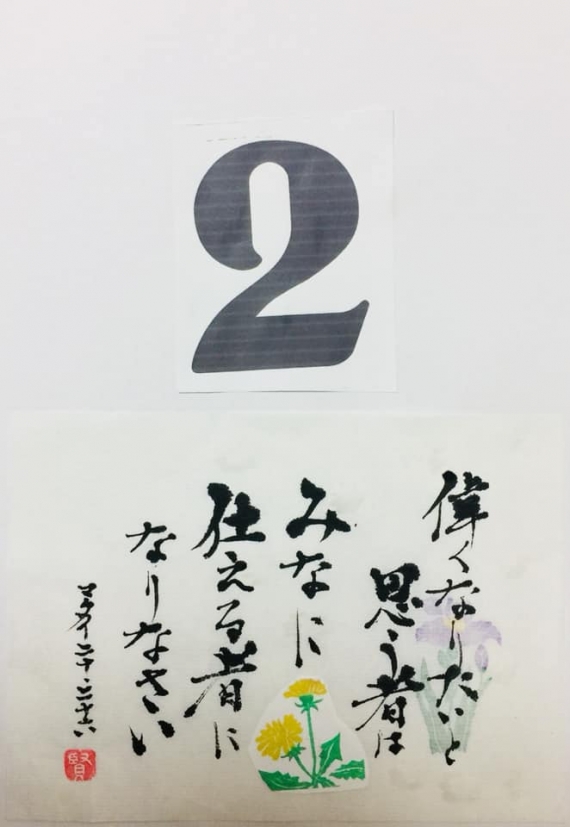 2
偉くなりたいと
思う者は
みなに
仕える者に
なりなさい
マタイ二十・二十六
賢